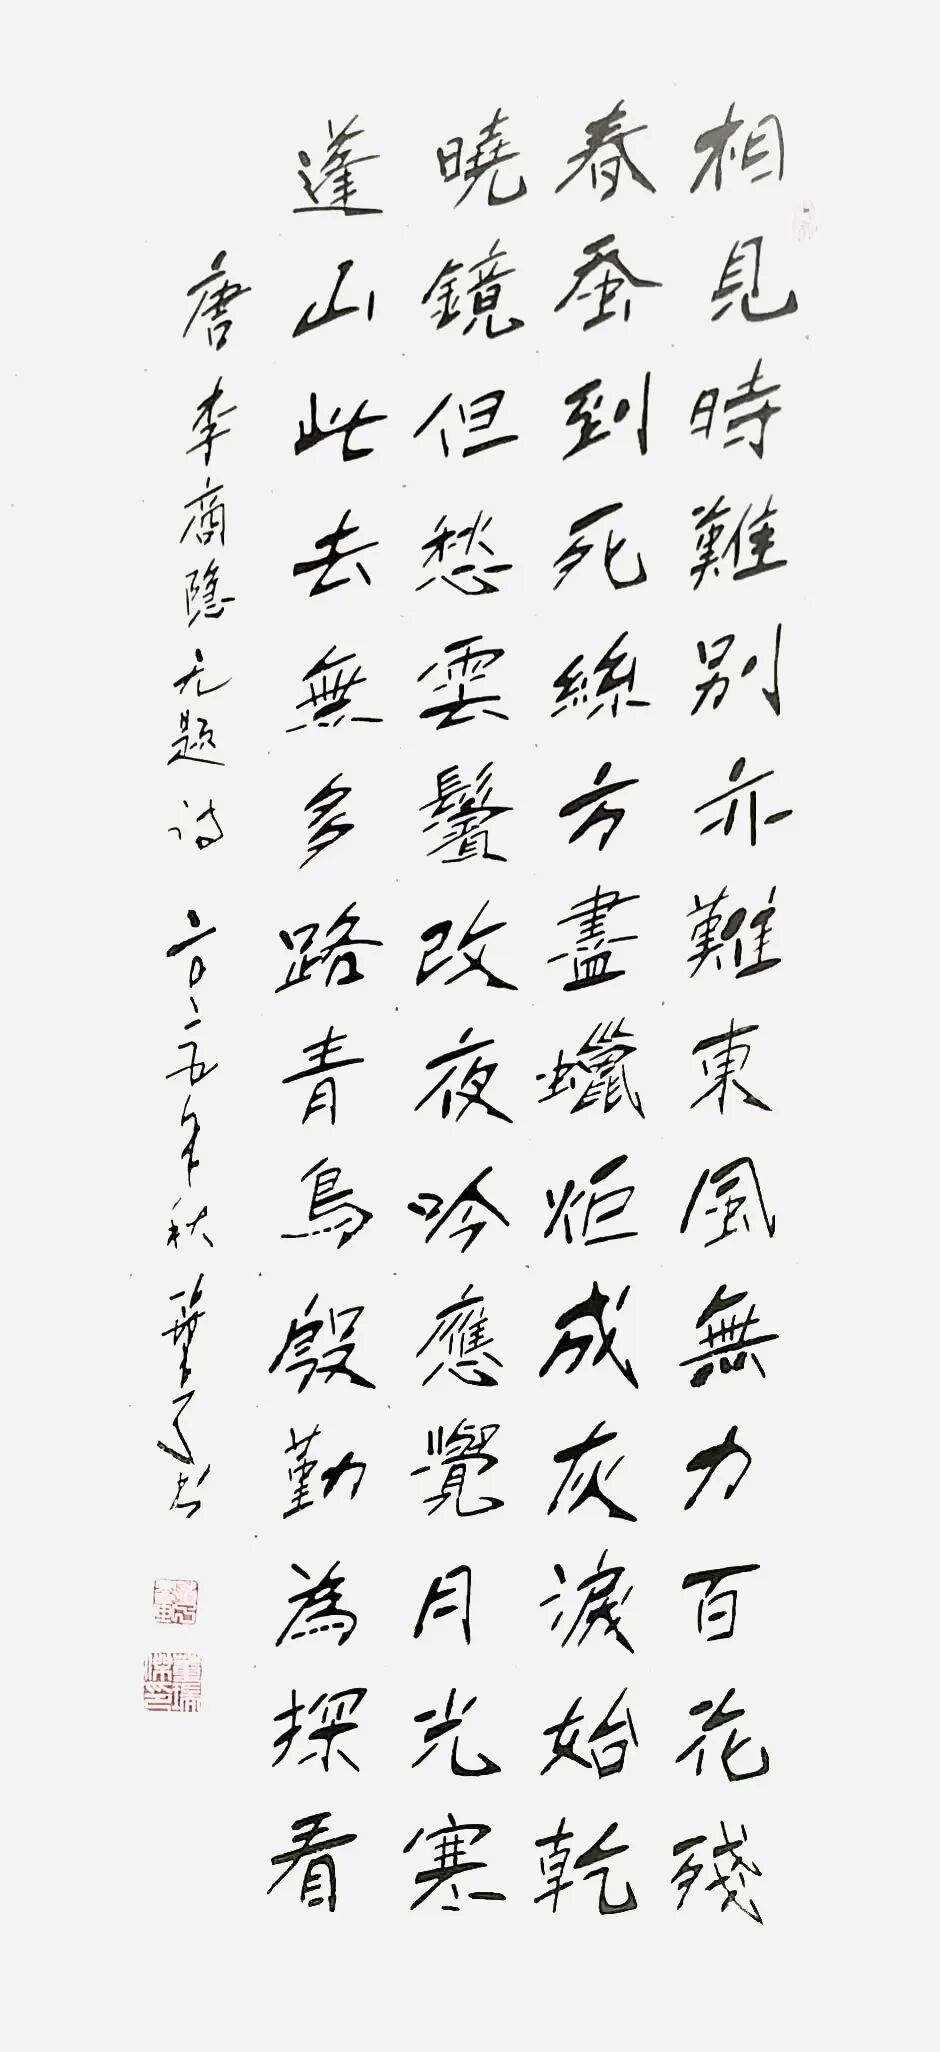 相見時難别亦難東風無力百花殘
春蚕到死絲方盡蠟炬成灰淚始乾
曉鏡但愁雲鬢改夜吟應覺月光寒
蓬山此去無多路青鳥殷勤為探看
唐李商隱无题诗 二〇二五年秋 书